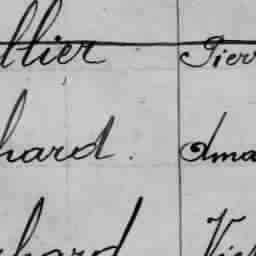 llier Pierr
hard. Ama
chard Vict